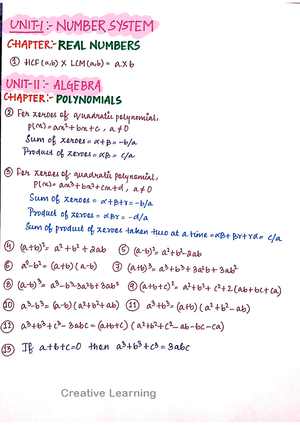 UNIT-I :- NUMBER SYSTEM
CHAPTER:- REAL NUMBERS
① HCF(a,b) × LCM(a,b) = a×b
UNIT-II :- ALGEBRA
CHAPTER:- POLYNOMIALS
② For zeroes of quadratic polynomial,
p(x) = ax²+bx+c, a≠0
Sum of zeroes = α+β = -b/a
Product of zeroes = αβ = c/a
③ For zeroes of quadratic polynomial,
p(x) = ax³+bx²+cx+d, a≠0
Sum of zeroes = α+β+γ = -b/a
Product of zeroes = αβγ = -d/a
Sum of product of zeroes taken two at a time = αβ+βγ+γα = c/a
④ (a+b)² = a²+b²+2ab ⑤ (a-b)² = a²+b²-2ab
⑥ a²-b² = (a+b)(a-b) ⑦ (a+b)³ = a³+b³+3a²b+3ab²
⑧ (a-b)³ = a³-b³-3a²b+3ab² ⑨ (a+b+c)² = a²+b²+c²+2(ab+bc+ca)
⑩ a³-b³ = (a-b)(a²+b²+ab) ⑪ a³+b³ = (a+b)(a²+b²-ab)
⑫ a³+b³+c³-3abc = (a+b+c)(a²+b²+c²-ab-bc-ca)
⑬ If a+b+c=0 then a³+b³+c³=3abc
Creative Learning